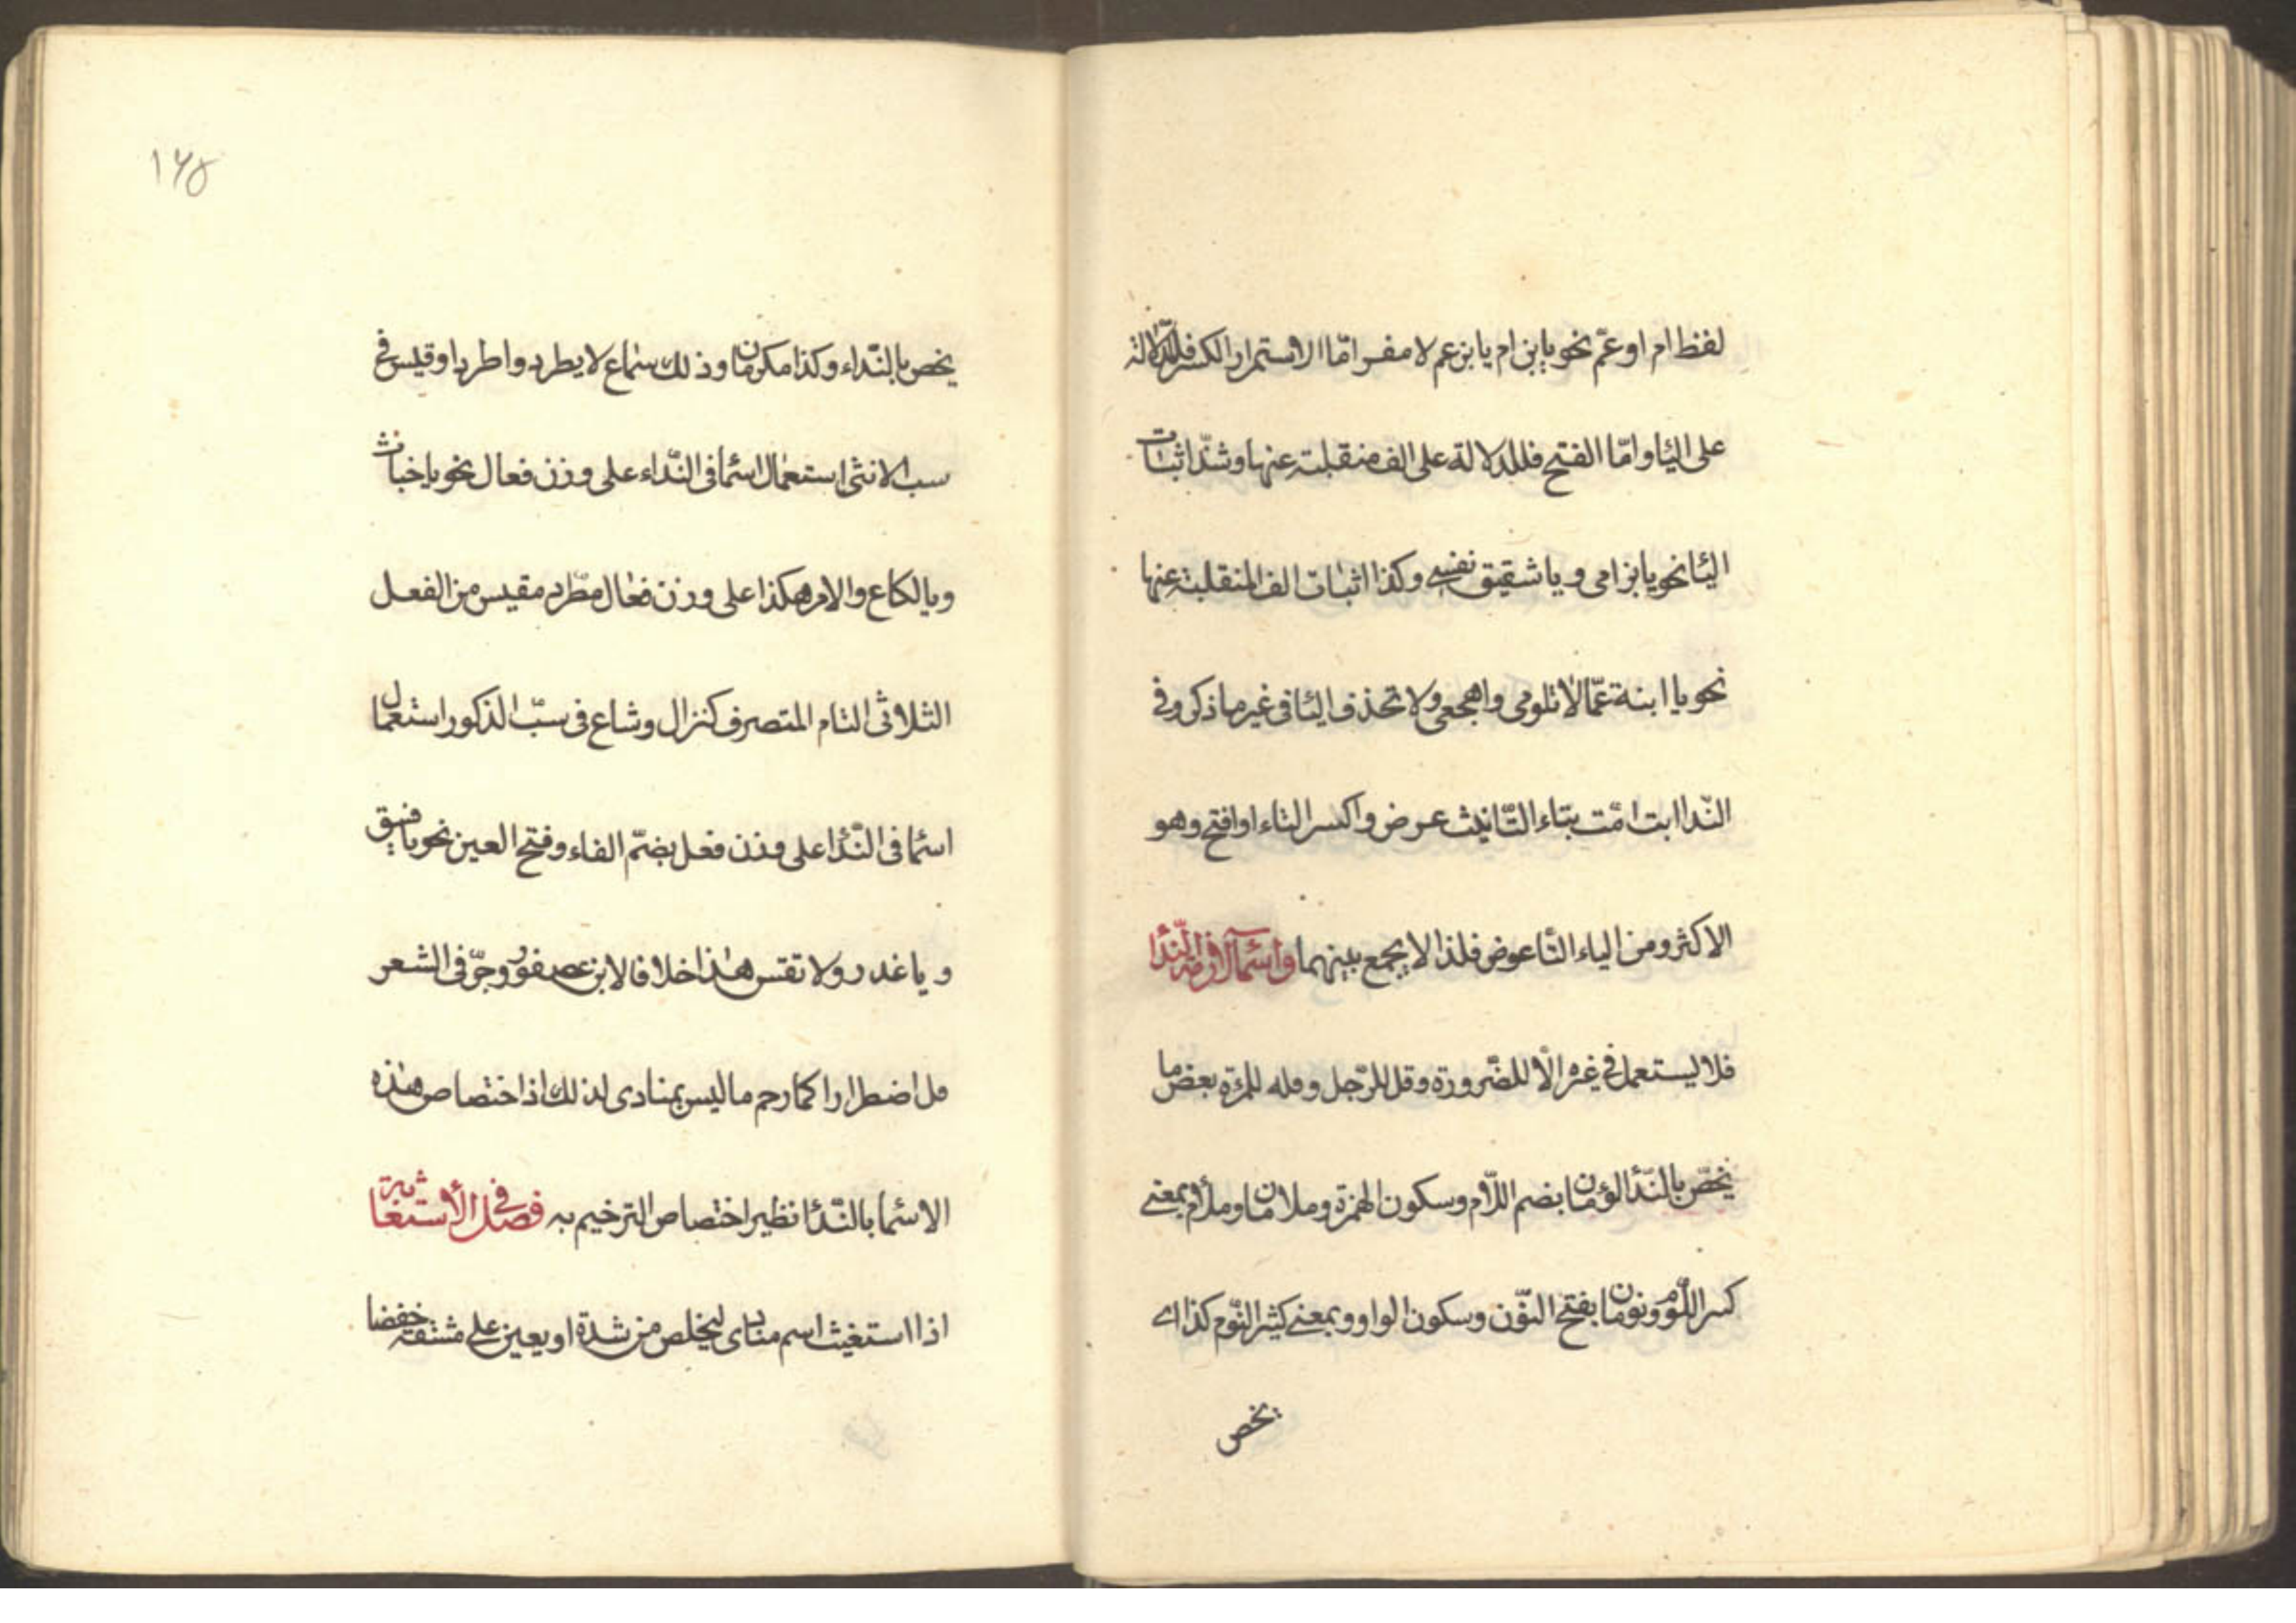 لفظ ام او عمّ نحو يابن ام يا بن عم لا مفر امّا الاستمرار الكسر فللدّلالة
على اليا واما الفتح فللدلالة على الف منقلبة عنها وشذّ اثبات
اليا نحو يا بن امى ويا شقيق نفسى وكذا اثبات الف المنقلبة عنها
نحو يا ابنة عمّا لا تلومى واهجعى ولا تحذف اليا فى غير ما ذكر وفى
النّدا ابت امّت بتاء التّانيث عرض واكسر التاء او افتح وهو
الاكثر ومن الياء التّا عوض فلذا لا يجمع بينهما واسماء لازمة النّدا
فلا يستعمل فى غيره الّا للضّرورة وقل للرّجل وفله للمرءة بعض ما
يخصّ بالنّدا لؤمان بضم اللّام وسكون الهمزة وملامان وملأم بمعنى
كسر اللّوم ونومان بفتح النّون وسكون الواو وبمعنى كثير النّوم كذا اى
يخص
١٦٥
يخص بالنّداء وكذا مكرمان وذلك سماع لا يطرد واطردا وقيس فى
سب الانثى استعمال اسما فى النّداء على وزن فعال نحو يا خباث
ويا لكاع والامر هكذا على وزن فعال مطّرد مقيس من الفعل
الثلاثى التام المتصرف كنزال وشاع فى سبّ الذكور استعمال
اسما فى النّدا على وزن فعل بضمّ الفاء وفتح العين نحو يا فسق
ويا غدر ولا تقس هذا خلافا لابن عصفور وجرّ فى الشعر
فل اضطرارا كما رحم ما ليس بمنادى لذلك اذ اختصاص هذه
الاسما بالنّدا نظير اختصاص الترخيم به فصل فى الاستغاثة
اذا استغيث اسم منادى ليخلص من شدة او يعين على مشقة خفضا